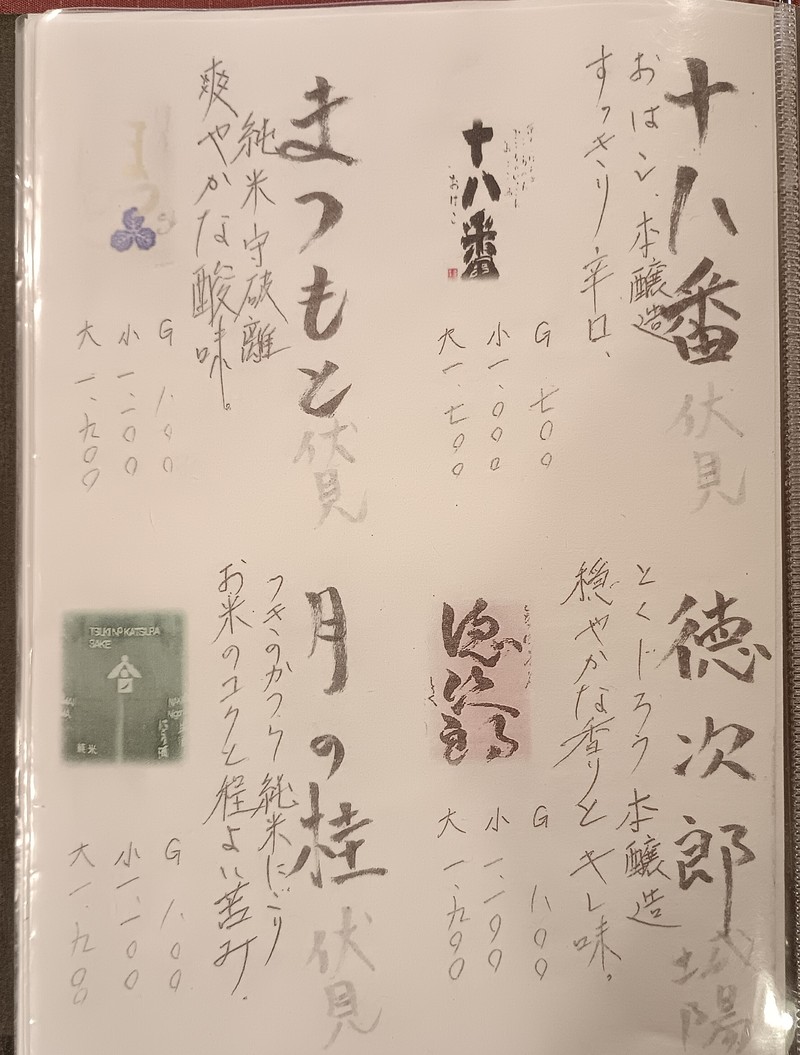 十八番 伏見
おはこ 本醸造
すっきり辛口、
十八番
おはこ
G 七〇〇
小 一、〇〇〇
大 一、七〇〇
まつもと 伏見
純米 守破離
爽やかな酸味。
G 八〇〇
小 一、二〇〇
大 一、九〇〇
徳次郎 城陽
とくじろう 本醸造
穏やかな香りとキレ味。
徳次郎
G 八〇〇
小 一、一〇〇
大 一、九〇〇
月の桂 伏見
つきのかつら 純米にごり
お米のコクと程よい苦み.
TSUKI NO KATSURA
SAKE
純米
G 八〇〇
小 一、一〇〇
大 一、九〇〇